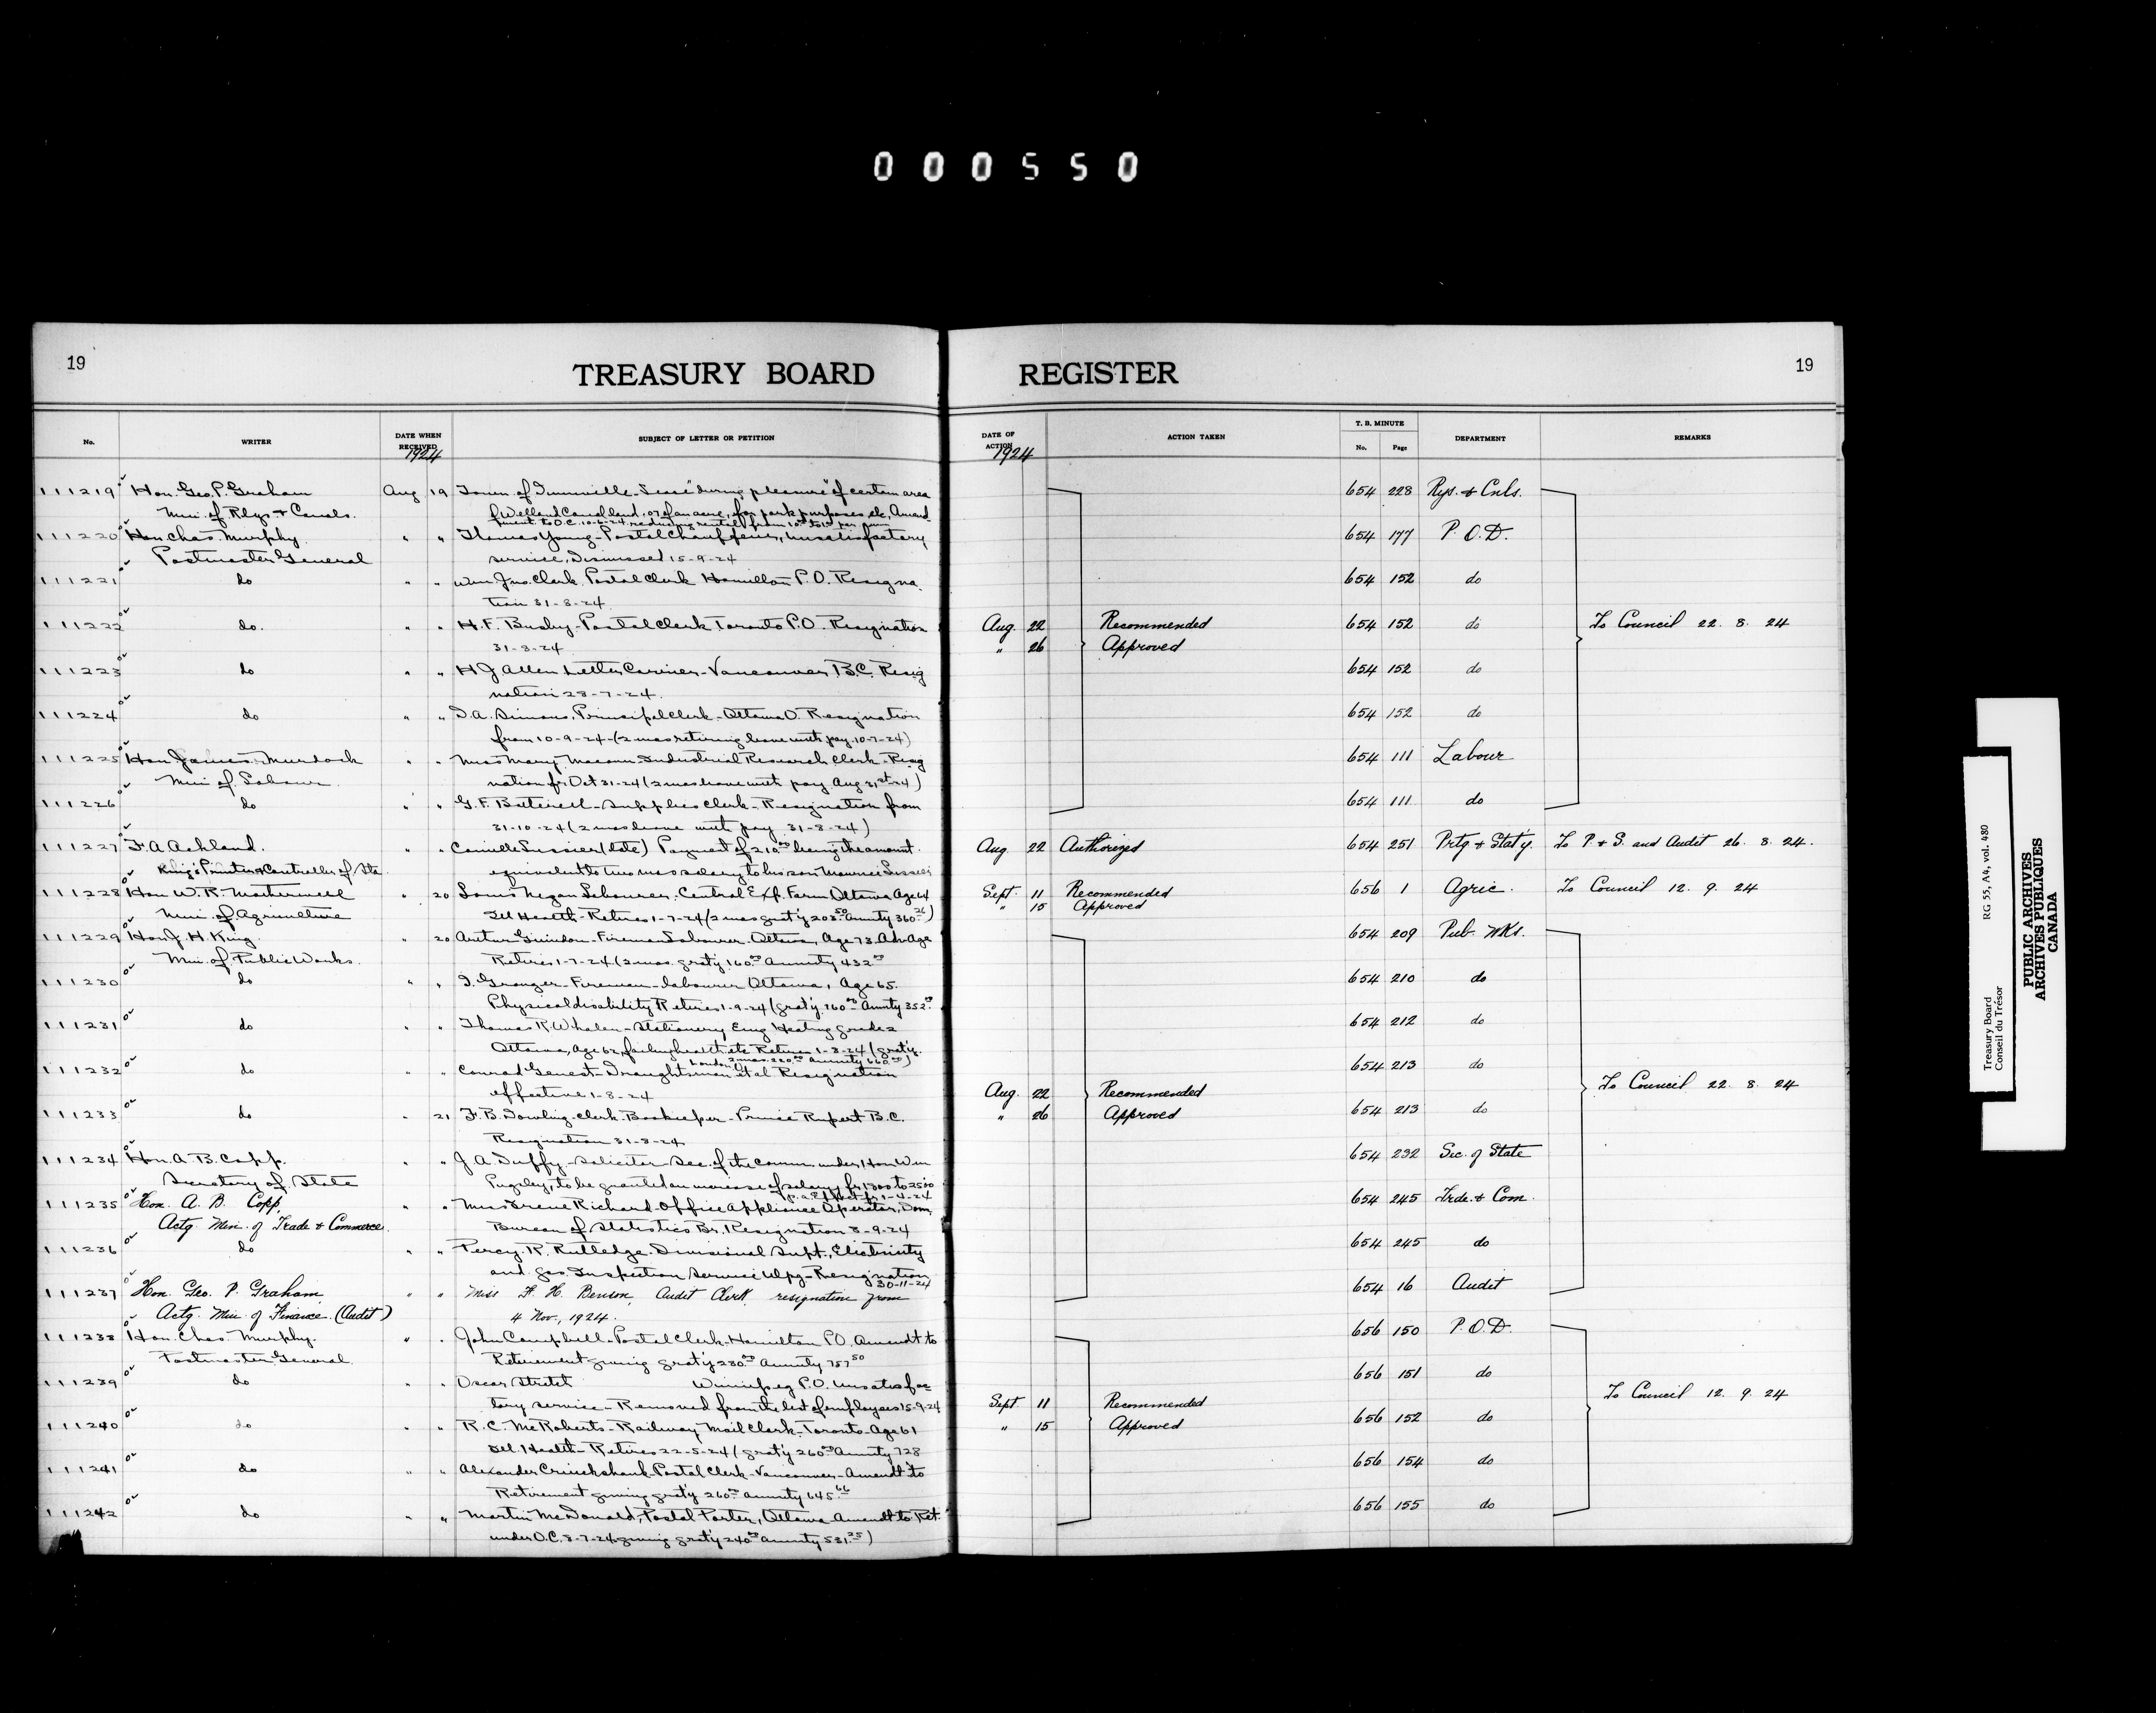 000550
19
TREASURY BOARD REGISTER
19
No. WRITER DATE WHEN RECEIVED SUBJECT OF LETTER OR PETITION DATE OF ACTION ACTION TAKEN T. B. MINUTE No. Page DEPARTMENT REMARKS
1924 1924
111219 Hon. Geo. P. Graham Aug 19 Town of Dunnville - Lease "during pleasure" of certain area 654 228 Rys. & Cnls.
Min. of Rlys & Canals. of Welland Canal land, .07 of an acre, for park purposes etc, Amend-
ment to O.C. 10-6-24 reducing rental from 10.00 to 1.00 per ann
111220 Hon Chas. Murphy " " Thomas Young - Postal Chauffeur, Unsatisfactory 654 177 P.O.D.
Postmaster General service, Dismissed 15-9-24
111221 do " " Wm Jno. Clark Postal Clerk Hamilton P.O. Resigna- 654 152 do
tion 31-8-24
111222 do. " " H.F. Busby - Postal Clerk Toronto P.O. Resignation Aug. 22 Recommended 654 152 do To Council 22. 8. 24
31-8-24 " 26 Approved
111223 do " " H J Allen Letter Carrier - Vancouver B.C. Resig 654 152 do
nation 28-7-24.
111224 do " " D.A. Simons, Principal Clerk - Ottawa O. Resignation 654 152 do
from 10-9-24 - (2 mos retiring leave with pay 10-7-24)
111225 Hon James Murdock " " Miss Mary Industrial Research Clerk - Resig 654 111 Labour
Min of Labour nation fr Oct 31-24 (2 mos leave with pay Aug 31st 24)
111226 do " " G.F. - Supplies Clerk - Resignation from 654 111 do
31-10-24 (2 mos leave with pay 31-8-24)
111227 F.A Acland. " " Camille Lussier (late) Payment of 210.00 being the amount Aug 22 Authorized 654 251 Prtg & Stat'y. To P. & S. and Audit 26. 8. 24.
King's Printer & Controller of Sta equivalent to two mos salary to his son Maurice Lussier
111228 Hon W. R. Motherwell " 20 Louis Labourer. Central Exp. Farm Ottawa Age 64 Sept. 11 Recommended 656 1 Agric. To Council 12. 9. 24
Min. of Agriculture Ill Health - Retires 1-7-24 (2 mos grat'y 203.50 Annuity 360.) " 15 Approved
111229 Hon J. H. King. " 20 Arthur Guindon - Fireman Labourer. Ottawa, Age 73 Adv. Age 654 209 Pub. Wks.
Min. of Public Works. Retires 1-7-24 (2 mos. grat'y 160.00 Annuity 432.00
111230 do " " Granger - Fireman - labourer Ottawa, Age 65. 654 210 do
Physical disability Retires 1-9-24 (grat'y 160.00 Annuity 352.
111231 do " " Thomas R. Whalen - Stationery Eng Heating grade 2 654 212 do
Ottawa, Age 62, failing health etc Retires 1-8-24 (grat'y.
2 mos. 220.00 Annuity 660.00)
111232 do " " Conrad Genest - Draughtsman et al Resignation 654 213 do To Council 22. 8. 24
effective 1-8-24 Aug. 22 Recommended
111233 do " 21 F.B. Dowling. Clerk. Bookeeper - Prince Rupert B.C. " 26 Approved 654 213 do
Resignation 31-8-24
111234 Hon. A. B. Copp. " " J A Duffy - Solicitor Sec. of the Comm. under Hon Wm 654 232 Sec. of State
Secretary of State Pugsley, to be granted an increase of salary fr. 1800 to 2500
p.a. Effect fr 1-4-24
111235 Hon. A. B. Copp, " " Miss Irene Richard Office Appliance Operator, Dom. 654 245 Trde. & Com.
Actg. Min. of Trade & Commerce Bureau of Statistics Br. Resignation 3-9-24
111236 do " " Percy. R. Rutledge. Divisional Supt., Electricity 654 245 do
and gas Inspection Service Wpg - Resignation
30-11-24
111237 Hon. Geo. P. Graham " " Miss F. H. Benson, Audit Clerk, resignation from 654 16 Audit
Actg. Min. of Finance. (Audit) 4 Nov., 1924.
111238 Hon. Chas. Murphy. " " John Campbell - Postal Clerk - Hamilton PO. Amendt to 656 150 P.O.D.
Postmaster General Retirement giving grat'y 280.00 Annuity 757.50
111239 do " " Oscar Stretch Winnipeg P.O. Unsatisfac- 656 151 do To Council 12. 9. 24
tory service - Removed from the list of employees 15-9-24 Sept 11 Recommended
111240 do " " R.C. McRoberts - Railway Mail Clerk - Toronto - Age 61 " 15 Approved 656 152 do
Ill Health - Retires 22-5-24 (grat'y 260.00 Annuity 728
111241 do " " Alexander Cruickshank Postal Clerk - Vancouver - Amendt to 656 154 do
Retirement giving grat'y 260.00 annuity 645.66
111242 do " " Martin McDonald, Postal Porter, Ottawa Amendt to Ret. 656 155 do
under O.C. 8-7-24 giving grat'y 240.00 Annuity 531.25)
Treasury Board RG 55, A4, vol. 480
Conseil du Trésor
PUBLIC ARCHIVES
ARCHIVES PUBLIQUES
CANADA